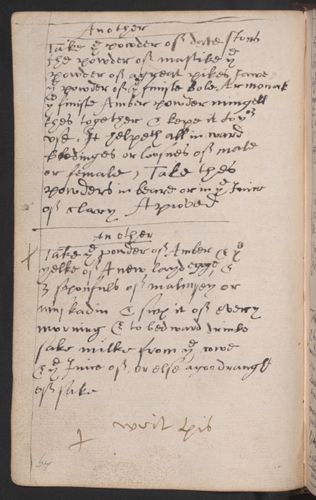 Another
Take ye powder of date stons
the powder of mastike ye
powder of a great pikes Jawe
ye powder of ye finiste Bole Armoniak
ye finiste Amber powder mingell
thes together & kepe it to yor
use. It helpeth all in ward
bledinges or losnes of male
or female, Take thes
powders in beare or in ye Juice
of Clary Aproved
an other
Take ye powder of Amber & ye
yelke of A new layd egge, &
3 sponfuls of malmsey or
muskadin & sup it of every
morning & to bedward drinke
sake milke from ye cowe
& ye Juice of, or else a good draught
of sake